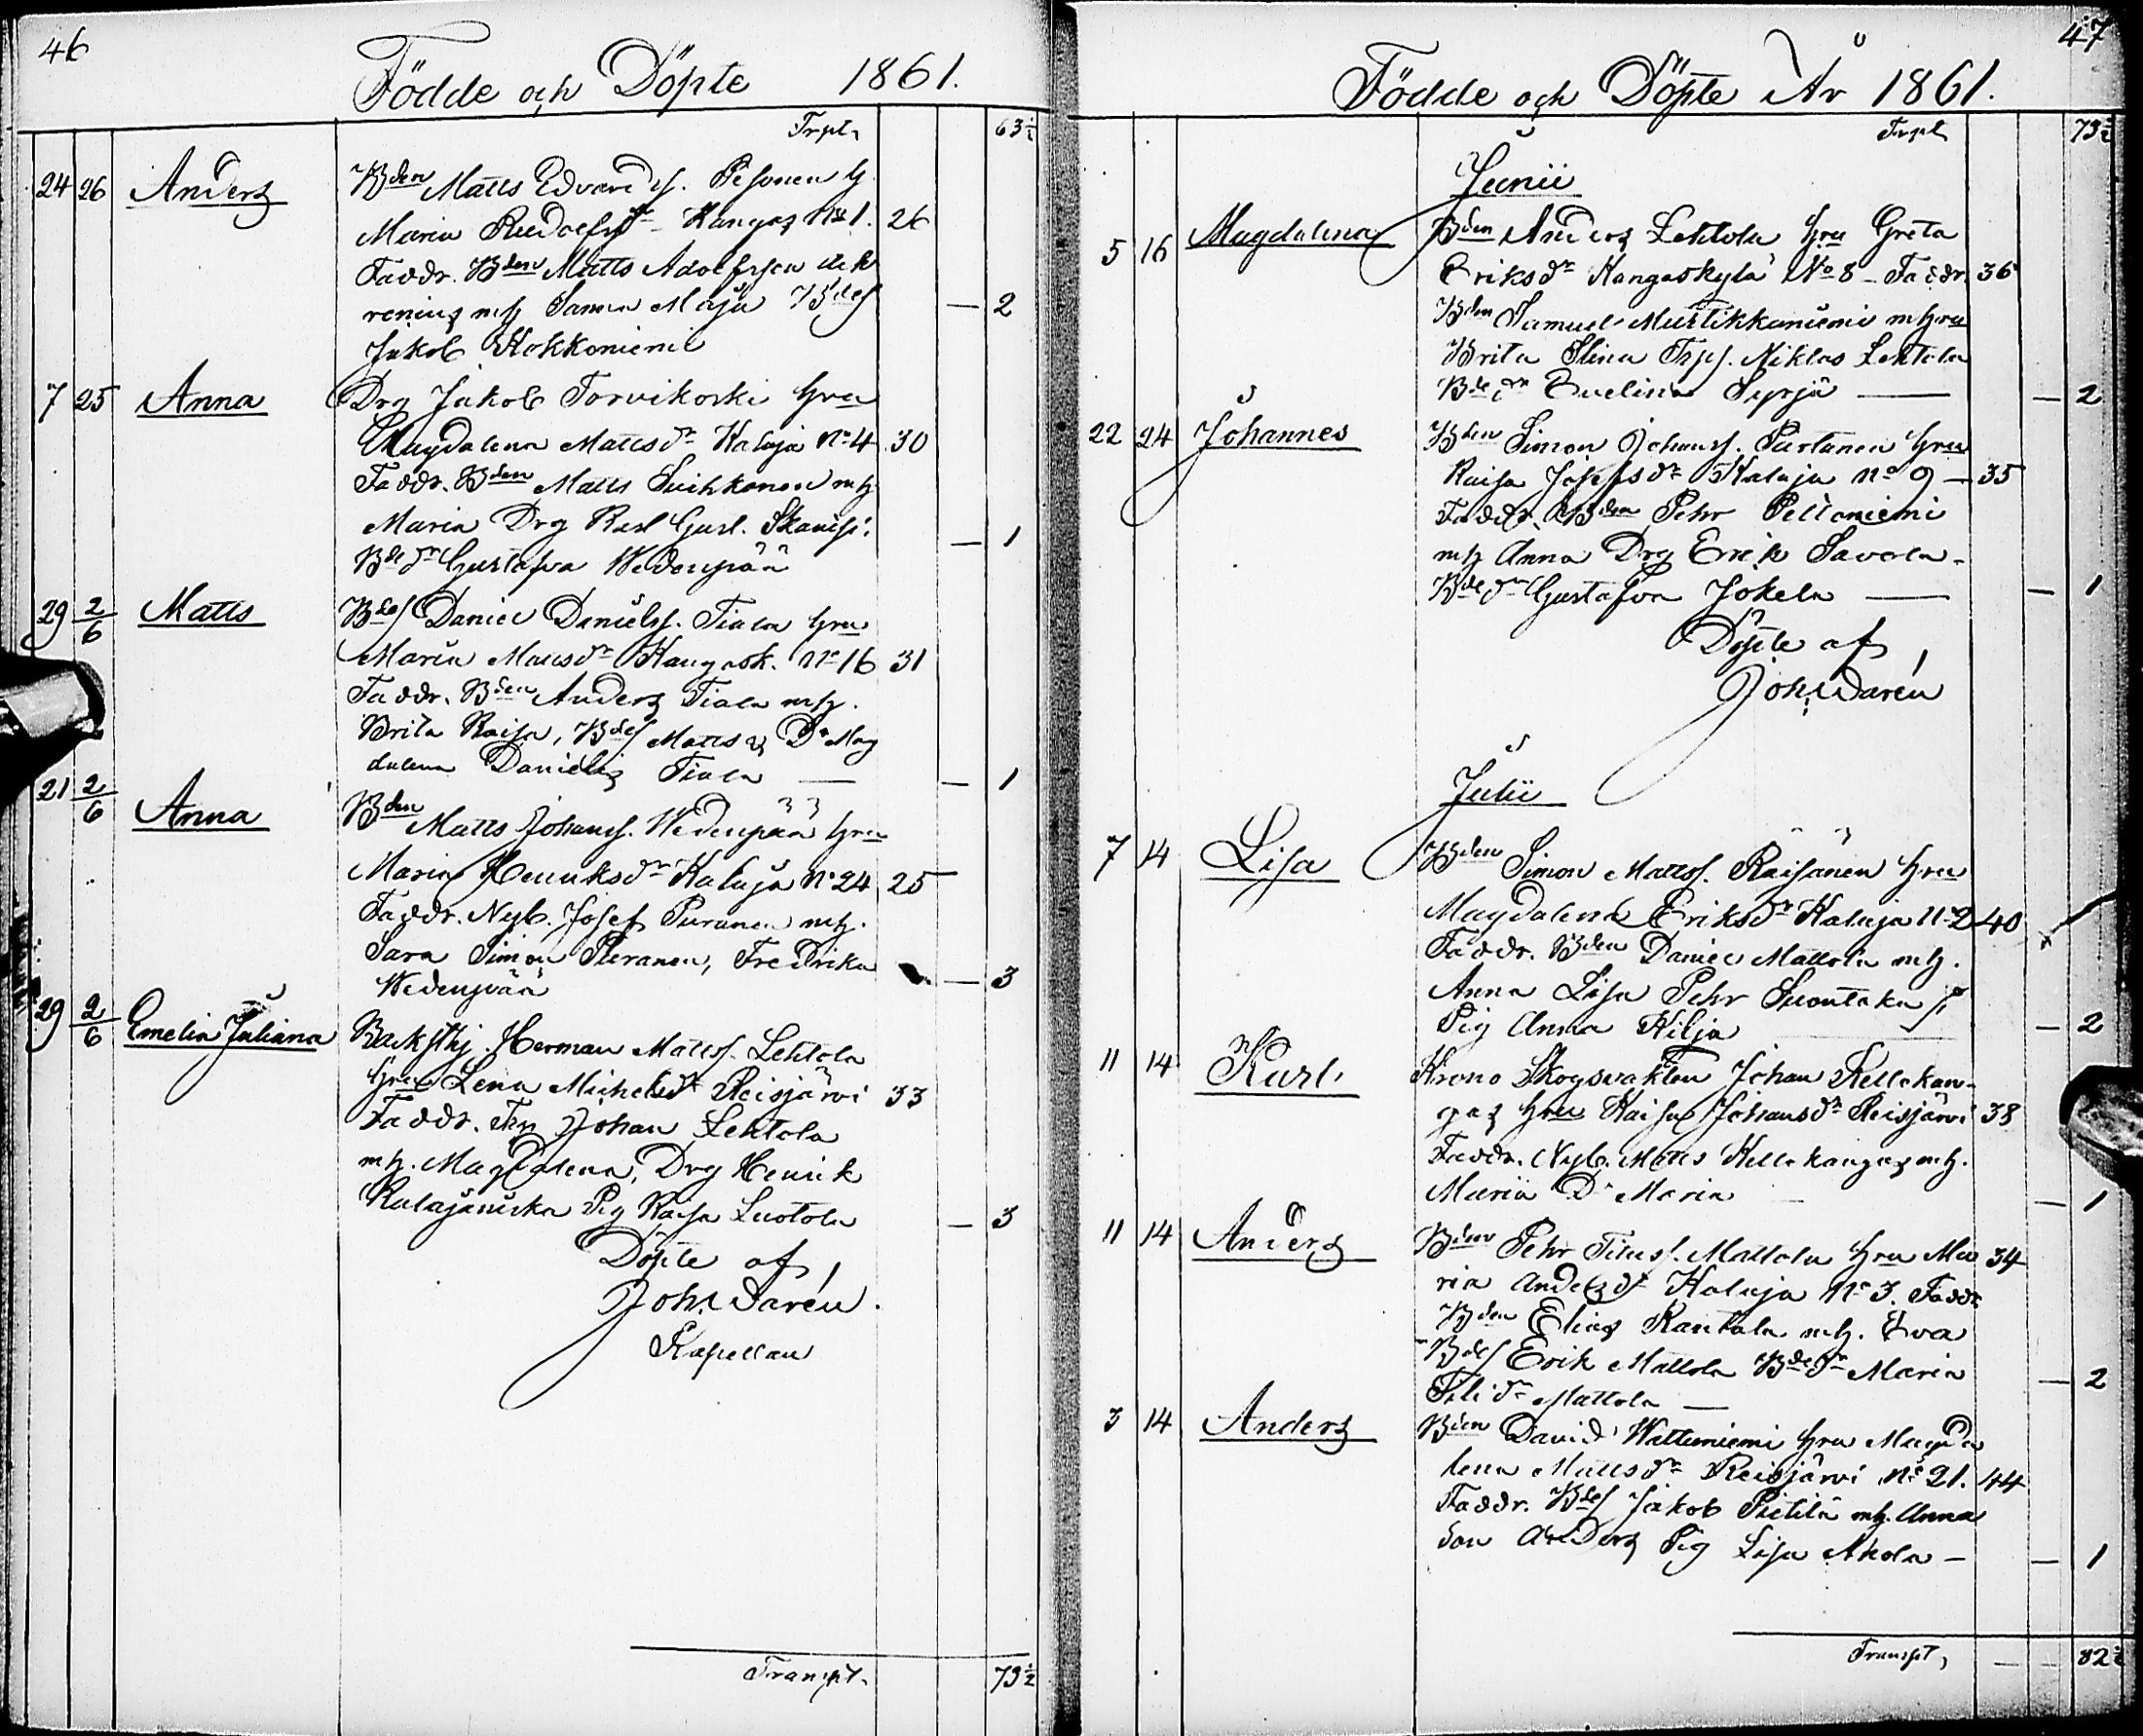 46
Födde och Döpte 1861.
Trpt. 63½
24 26 Anders Bden Matts Edvards. Pesonen h
Maria Rudolfsdr Kangas No 1. 26
Faddr. Bden Matts Adolfssen
mh Sanna Maja Bdes — 2
Jakob Kokkoniemi
7 25 Anna Drg Jakob Torvikoski hru
Magdalena Mattsdr Kalaja No 4 30
Faddr. Bden Matts Suihkonen mh
Maria Drg Karl Gust.
Bdedr Gustafva Wedenpää — 1
29 2/6 Matts Bdes Daniel Daniels. Tiala hru
Maria Mattsdr Kangask. No 16 31
Faddr. Bden Anders Tiala mh.
Brita Kaisa, Bdes Matts & Do Mag
dalena Daniels Tiala — 1
21 2/6 Anna Bden Matts Johans. Wedenpää hru
Maria Henriksdr Kalaja No 24 25
Faddr. Nyb. Josef Puranen mh.
Sara Simon Puranen, Fredrika — 3
Wedenpää
29 2/6 Emelia Juliana Backsthj. Herman Matts. Lehtola
hru Lena Michelsdr Reisjärvi 33
Faddr. Johan Lehtola
mh. Magdalena, Drg Henrik
Pig Kaisa Luotola — 3
Döpte af
Joh. Darén.
Kapellan
Transpt. 73½
47
Födde och Döpte År 1861.
Trpt 73½
Junii
5 16 Magdalena Bden Anders Lehtola hru Greta
Eriksdr Kangaskylä No 8 – Faddr. 36
Bden Samuel Mustikkaniemi mhru
Brita Stina Niklas Lehtola
Bdedr Evelina Syrjä — 2
22 24 Johannes Bden Simon Johans. Partanen hru
Kaisa Josefsdr Kalaja No 9 — 35
Faddr. Bden Pehr Peltoniemi
mh Anna Drg Erik Savola.
Bdedr Gustafva Jokela — 1
Döpte af
Joh. Darén
Julii
7 14 Lisa Bden Simon Matts. Räisänen hru
Magdalena Eriksdr Kalaja No 2 40
Faddr. Bden Daniel Mattola mh.
Anna Lisa Pehr Suontaka
Pig Anna Kilja — 2
11 14 Karl. Krono Skogsvakten Johan Kellokan-
gas hru Kaisa Johansdr Reisjärvi 38
Faddr. Nyb. Matts Kellokangas mh.
Maria Do Maria — 1
11 14 Anders Bden Pehr Mattola hru Ma 34
ria Andersdr Kalaja No 3. Faddr.
Bden Elias Rantala mh. Eva
Bdes Erik Mattola Bdedr Maria — 2
Mattola —
3 14 Anders Bden David Wattuniemi hru Magda
lena Mattsdr Reisjärvi No 21. 44
Faddr. Bdes Jakob Pietilä mh. Anna
son Anders Pig Lisa Akola — 1
Transpt, — — 82½